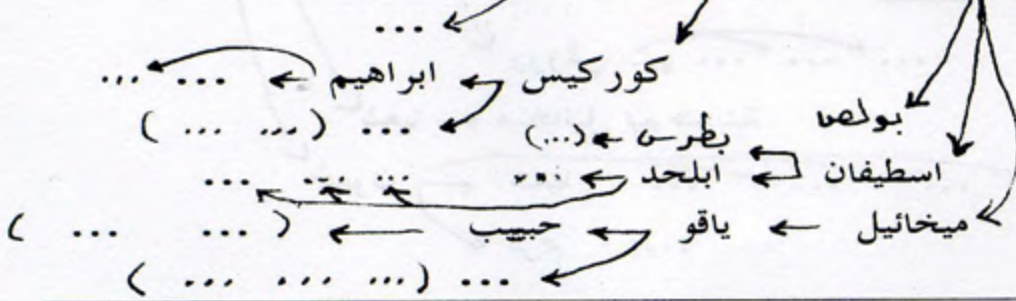 ...
كوركيس ← ابراهيم ← ... ...
... ( ... ... )
بولص
بطرس ← (...)
اسطيفان ← ابلحد ← ... ... ... ...
ميخائيل ← ياقو ← حبيب ← ( ... ... )
... ( ... ... ... )